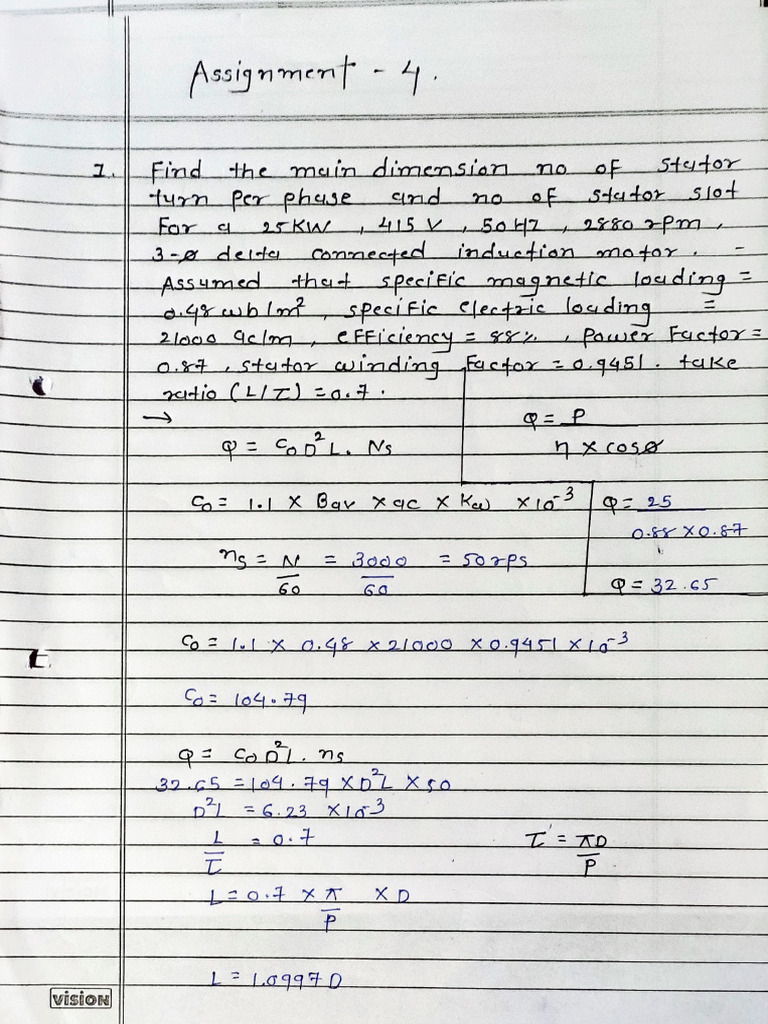 Assignment - 4.
1. Find the main dimension no of stator
turn per phase and no of stator slot
For a 25KW, 415 V, 50 HZ, 2880 rpm,
3-ø delta connected induction motor. -
Assumed that specific magnetic loading =
0.48 wb/m², specific electric loading =
21000 ac/m, efficiency = 88%, Power Factor =
0.87, stator winding factor = 0.9451. take
ratio (L/τ) = 0.7.
→
Q = P
η × cosø
Q = C₀D²L. Ns
C₀ = 1.1 × Bav × ac × Kω × 10⁻³
Q = 25
0.88 × 0.87
Q = 32.65
ns = N = 3000 = 50 rps
60 60
C₀ = 1.1 × 0.48 × 21000 × 0.9451 × 10⁻³
C₀ = 104.79
Q = C₀D²L. ns
32.65 = 104.79 × D²L × 50
D²L = 6.23 × 10⁻³
L = 0.7
τ
τ = πD
P
L = 0.7 × π × D
P
L = 1.0997 D
vision